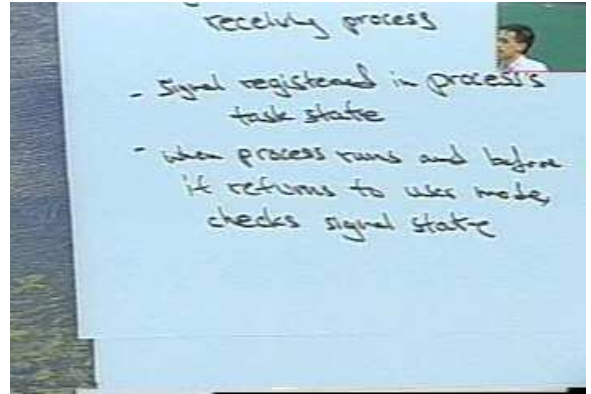 receiving process
- signal registered in process's
task state
- when process runs and before
it returns to user mode,
checks signal state